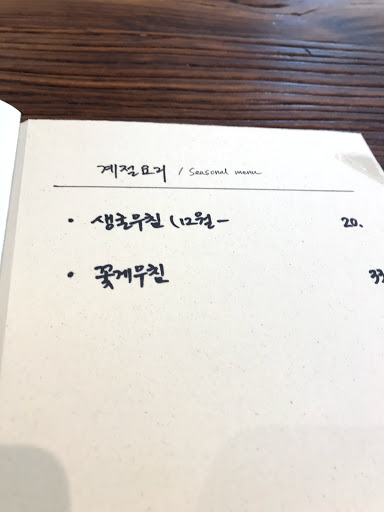 계절요리 / Seasonal menu
• 생굴무침 (12월~ 20.
• 꽃게무침 33